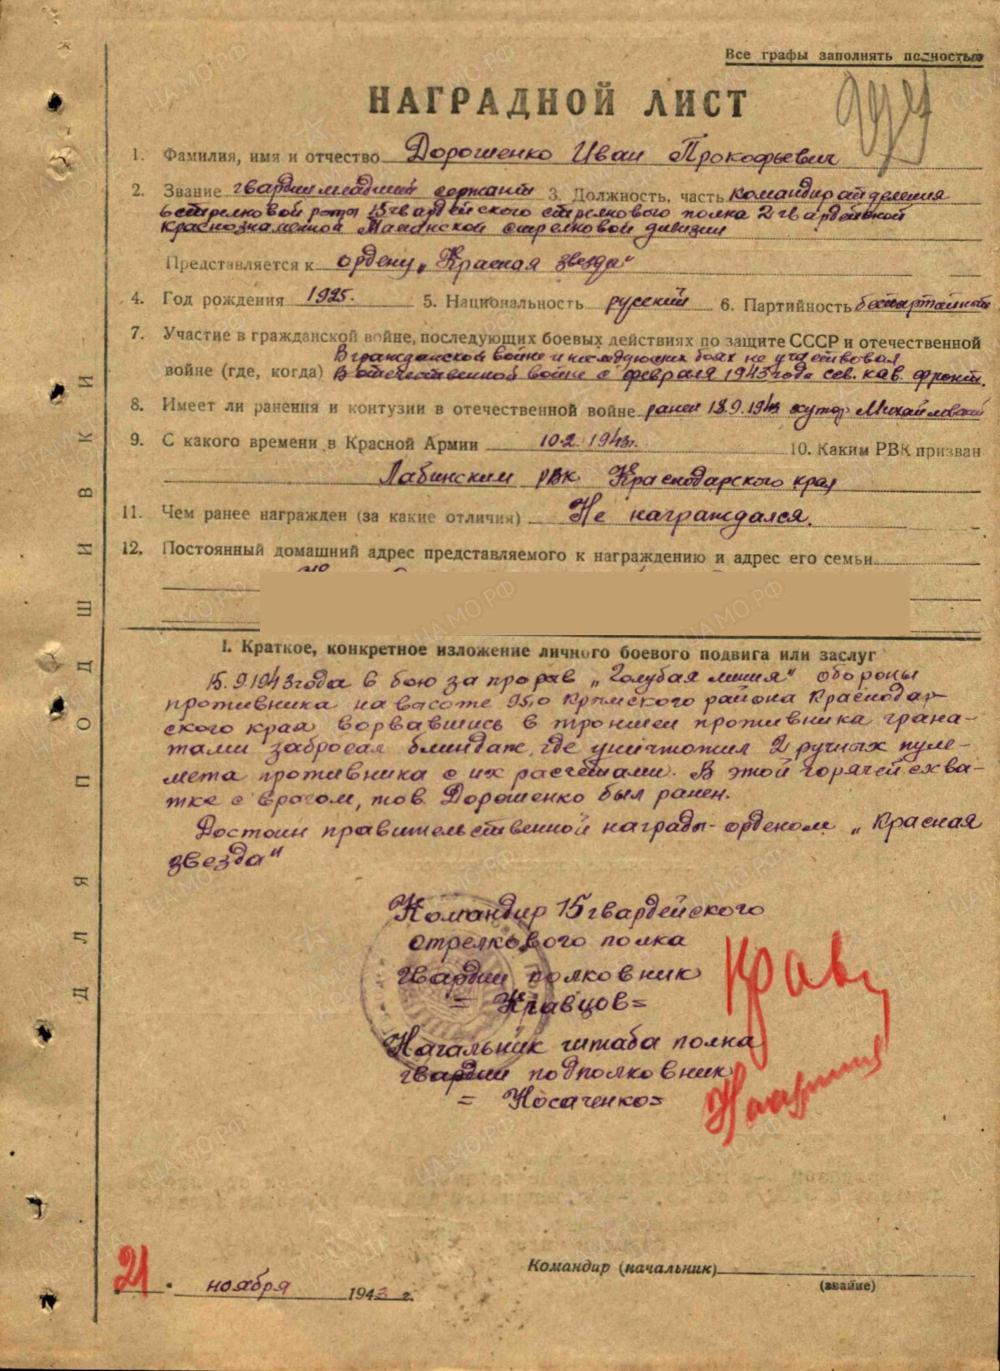 Все графы заполнять полностью
НАГРАДНОЙ ЛИСТ
1. Фамилия, имя и отчество Дорошенко Иван Прокофьевич
2. Звание гвардии младший сержант 3. Должность, часть командир отделения
6 стрелковой роты 15 гвардейского стрелкового полка 2 гвардейской
краснознаменной Таманской стрелковой дивизии
Представляется к ордену „Красная звезда"
4. Год рождения 1925. 5. Национальность русский 6. Партийность беспартийный
7. Участие в гражданской войне, последующих боевых действиях по защите СССР и отечественной
В гражданской войне и последующих боях не участвовал
войне (где, когда) В отечественной войне с февраля 1943 года сев. кав. фронт.
8. Имеет ли ранения и контузии в отечественной войне ранен 18.9.1943 хутор Михайловский
9. С какого времени в Красной Армии 10.2.1943г. 10. Каким РВК призван
Лабинским рвк Краснодарского края
11. Чем ранее награжден (за какие отличия) Не награждался.
12. Постоянный домашний адрес представляемого к награждению и адрес его семьи
I. Краткое, конкретное изложение личного боевого подвига или заслуг
15.9.1943 года в бою за прорыв „Голубая линия" обороны
противника на высоте 95,0 Крымского района Краснодар-
ского края ворвавшись в траншеи противника грана-
тами забросал блиндаж, где уничтожил 2 ручных пуле-
мета противника с их расчетами. В этой горячей схва-
тке с врагом, тов. Дорошенко был ранен.
Достоин правительственной награды - орденом „Красная
звезда"
Командир 15 гвардейского
стрелкового полка
гвардии полковник
= Кравцов =
Начальник штаба полка
гвардии подполковник
= Носаченко =
21 • ноября 1943 г.
Командир (начальник)
(звание)
ДЛЯ ПОДШИВКИ
ЦАМО.РФ